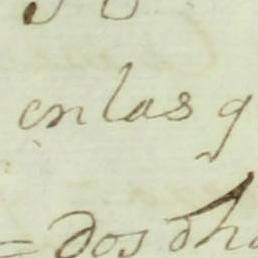 en las q
= dos dho